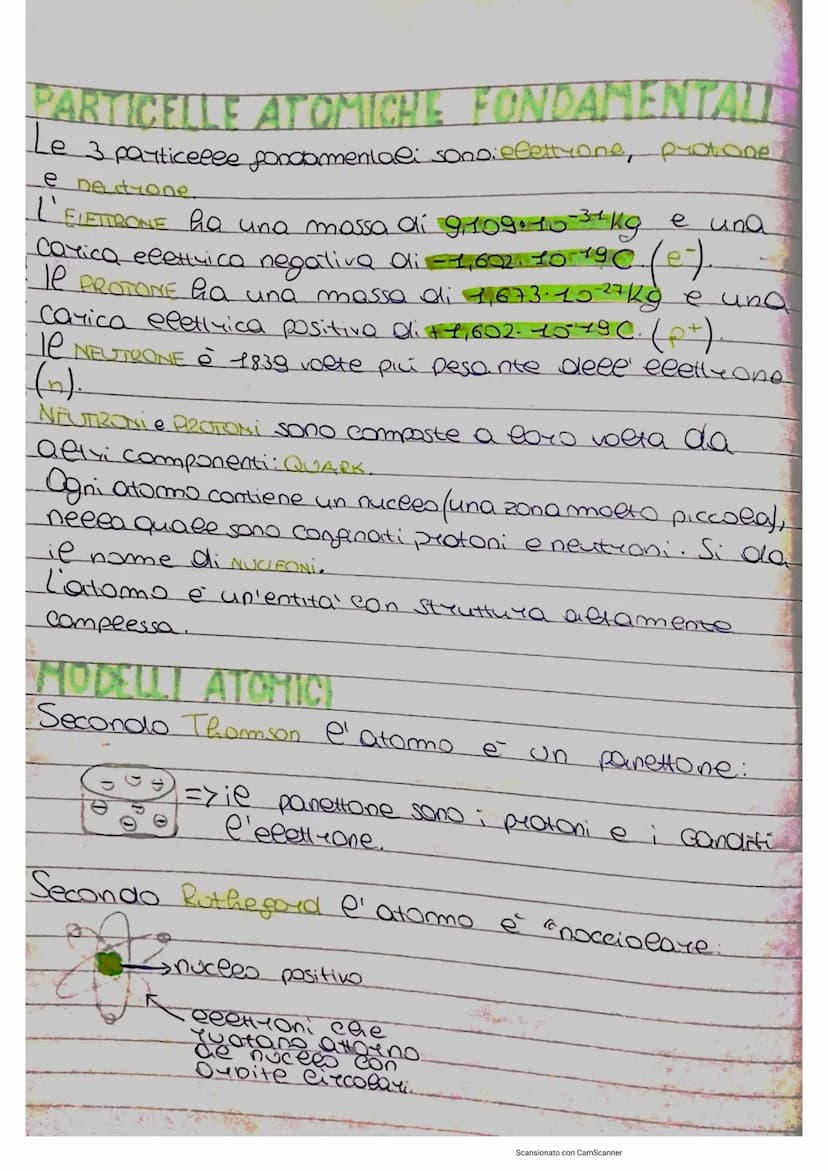 PARTICELLE ATOMICHE FONDAMENTALI
Le 3 particelle fondamentali sono: elettrone, protone
e neutrone.
L'ELETTRONE ha una massa di 9,109·10⁻³¹ Kg e una
carica elettrica negativa di -1,602·10⁻¹⁹C.(e⁻).
Il PROTONE ha una massa di 1,673·10⁻²⁷Kg e una
carica elettrica positiva di +1,602·10⁻¹⁹C.(p⁺).
Il NEUTRONE è 1839 volte più pesante dell'elettrone
(n).
NEUTRONI e PROTONI sono composte a loro volta da
altri componenti: QUARK.
Ogni atomo contiene un nucleo (una zona molto piccola),
nella quale sono confinati protoni e neutroni. Si da
il nome di NUCLEONI.
L'atomo è un'entità con struttura altamente
complessa.
MODELLI ATOMICI
Secondo Thomson l'atomo è un panettone:
=> il panettone sono i protoni e i canditi
l'elettrone.
Secondo Rutheford l'atomo è "nocciolare:
nucleo positivo
elettroni che
ruotano attorno
al nucleo con
orbite circolari.
Scansionato con CamScanner